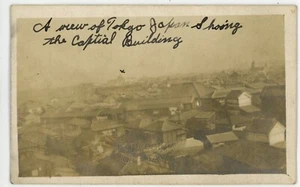 A view of Tokyo Japan Shoing
the Captial Building